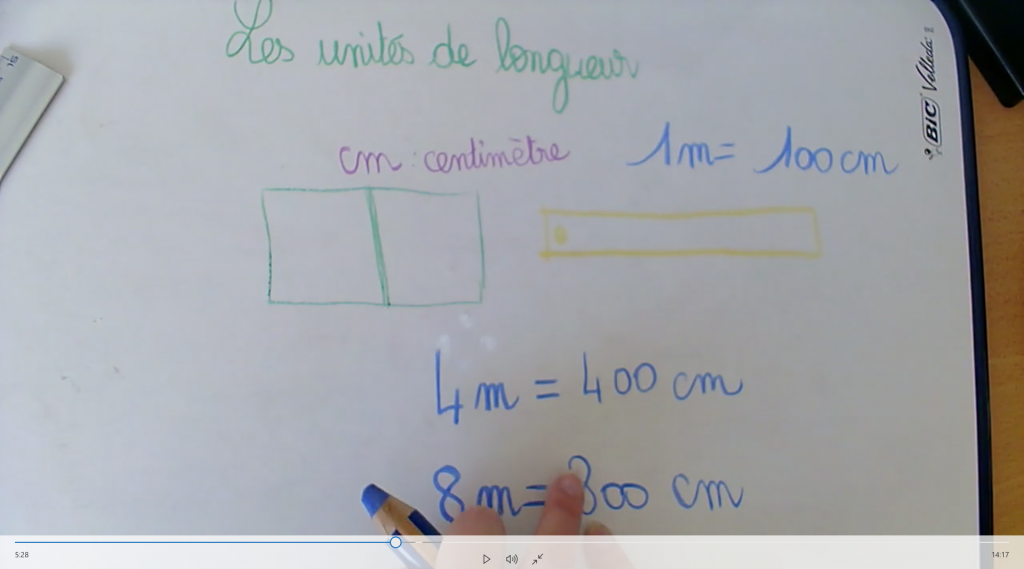 Les unités de longueur
cm : centimètre
1m = 100 cm
4 m = 400 cm
8 m = 800 cm
BIC Velleda
15
5:28
14:17